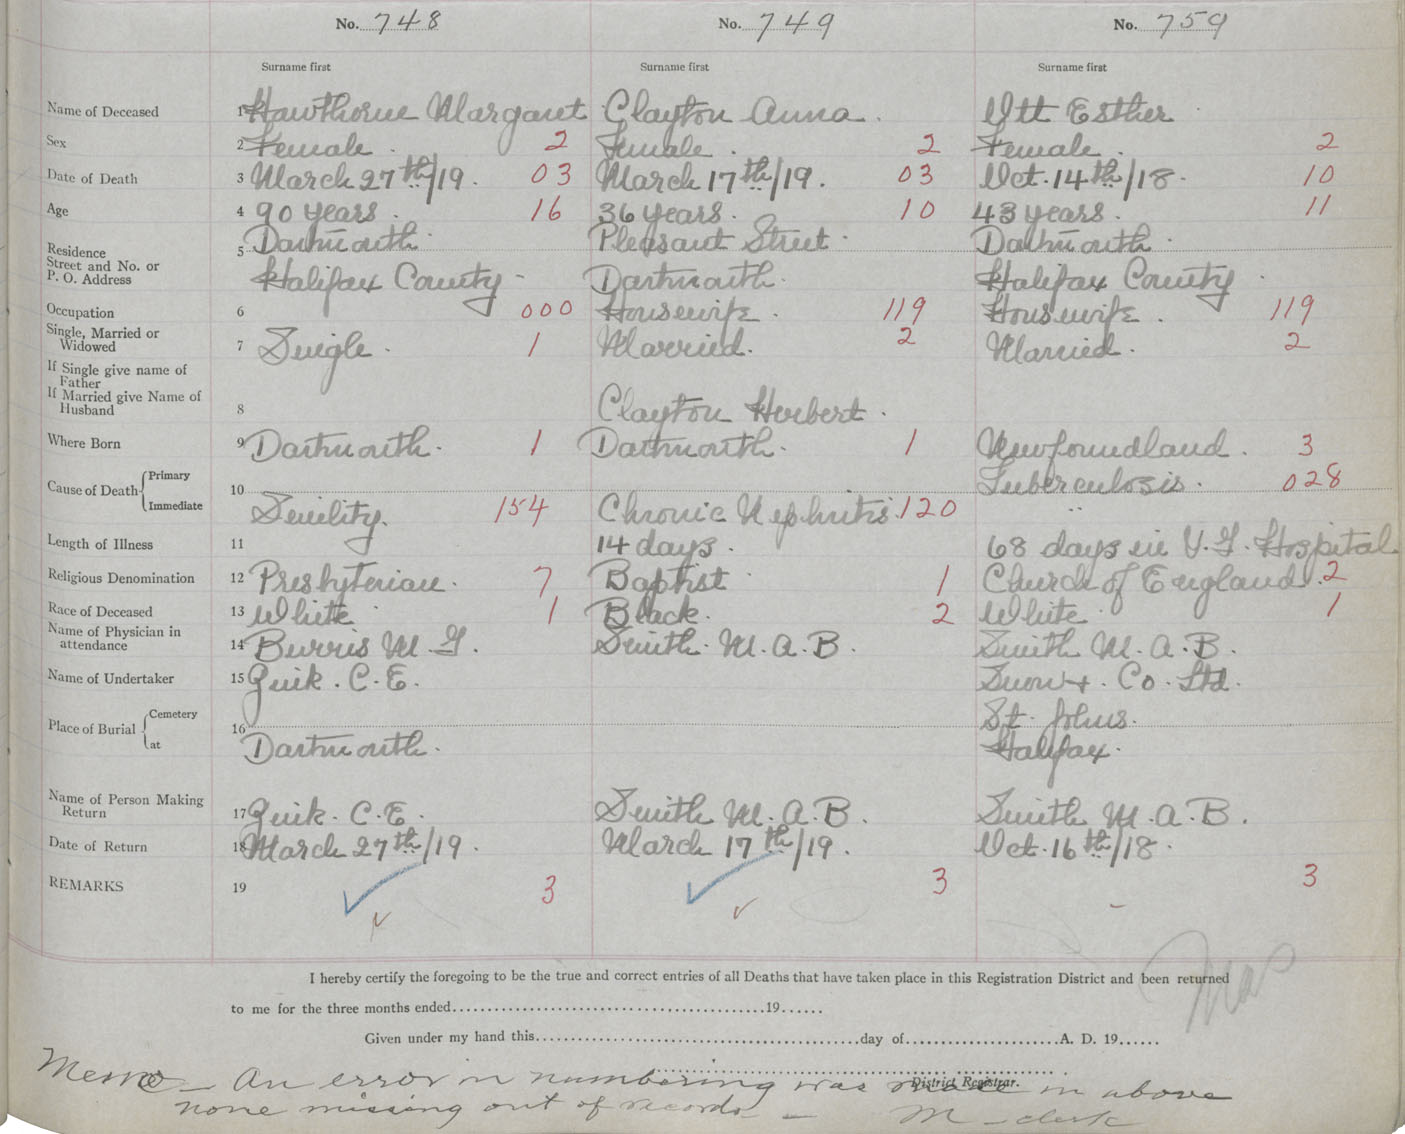 No. 748 No. 749 No. 759
Surname first Surname first Surname first
Name of Deceased 1 Hawthorne Margaret Clayton Anna. Ott Esther
Sex 2 Female. 2 Female. 2 Female. 2
Date of Death 3 March 27th/19. 03 March 17th/19. 03 Oct. 14th/18. 10
Age 4 90 years. 16 36 years. 10 43 years. 11
Residence 5 Dartmouth. Pleasant Street. Dartmouth.
Street and No. or
P. O. Address Halifax County Dartmouth. Halifax County
Occupation 6 000 Housewife. 119 Housewife. 119
Single, Married or
Widowed 7 Single. 1 Married. 2 Married. 2
If Single give name of
Father
If Married give Name of
Husband 8 Clayton Herbert.
Where Born 9 Dartmouth. 1 Dartmouth. 1 Newfoundland. 3
Cause of Death Primary 10 Tuberculosis. 028
Immediate Senility. 154 Chronic Nephritis. 120 "
Length of Illness 11 14 days. 68 days in V.G. Hospital
Religious Denomination 12 Presbyterian. 7 Baptist 1 Church of England. 2
Race of Deceased 13 White 1 Black. 2 White. 1
Name of Physician in
attendance 14 Burris M.G. Smith. M.A.B. Smith M.A.B.
Name of Undertaker 15 Zink. C.E. Snow +. Co. Ltd.
Place of Burial Cemetery 16 St. Johns.
at Dartmouth. Halifax.
Name of Person Making
Return 17 Zink. C.E. Smith M.A.B. Smith M.A.B.
Date of Return 18 March 27th/19. March 17th/19. Oct. 16th/18.
REMARKS 19 3 3 3
I hereby certify the foregoing to be the true and correct entries of all Deaths that have taken place in this Registration District and been returned
to me for the three months ended........................................19......
Given under my hand this........................................day of....................A. D. 19......
District Registrar.
Memo – An error in numbering was made in above
none missing out of records – M clerk